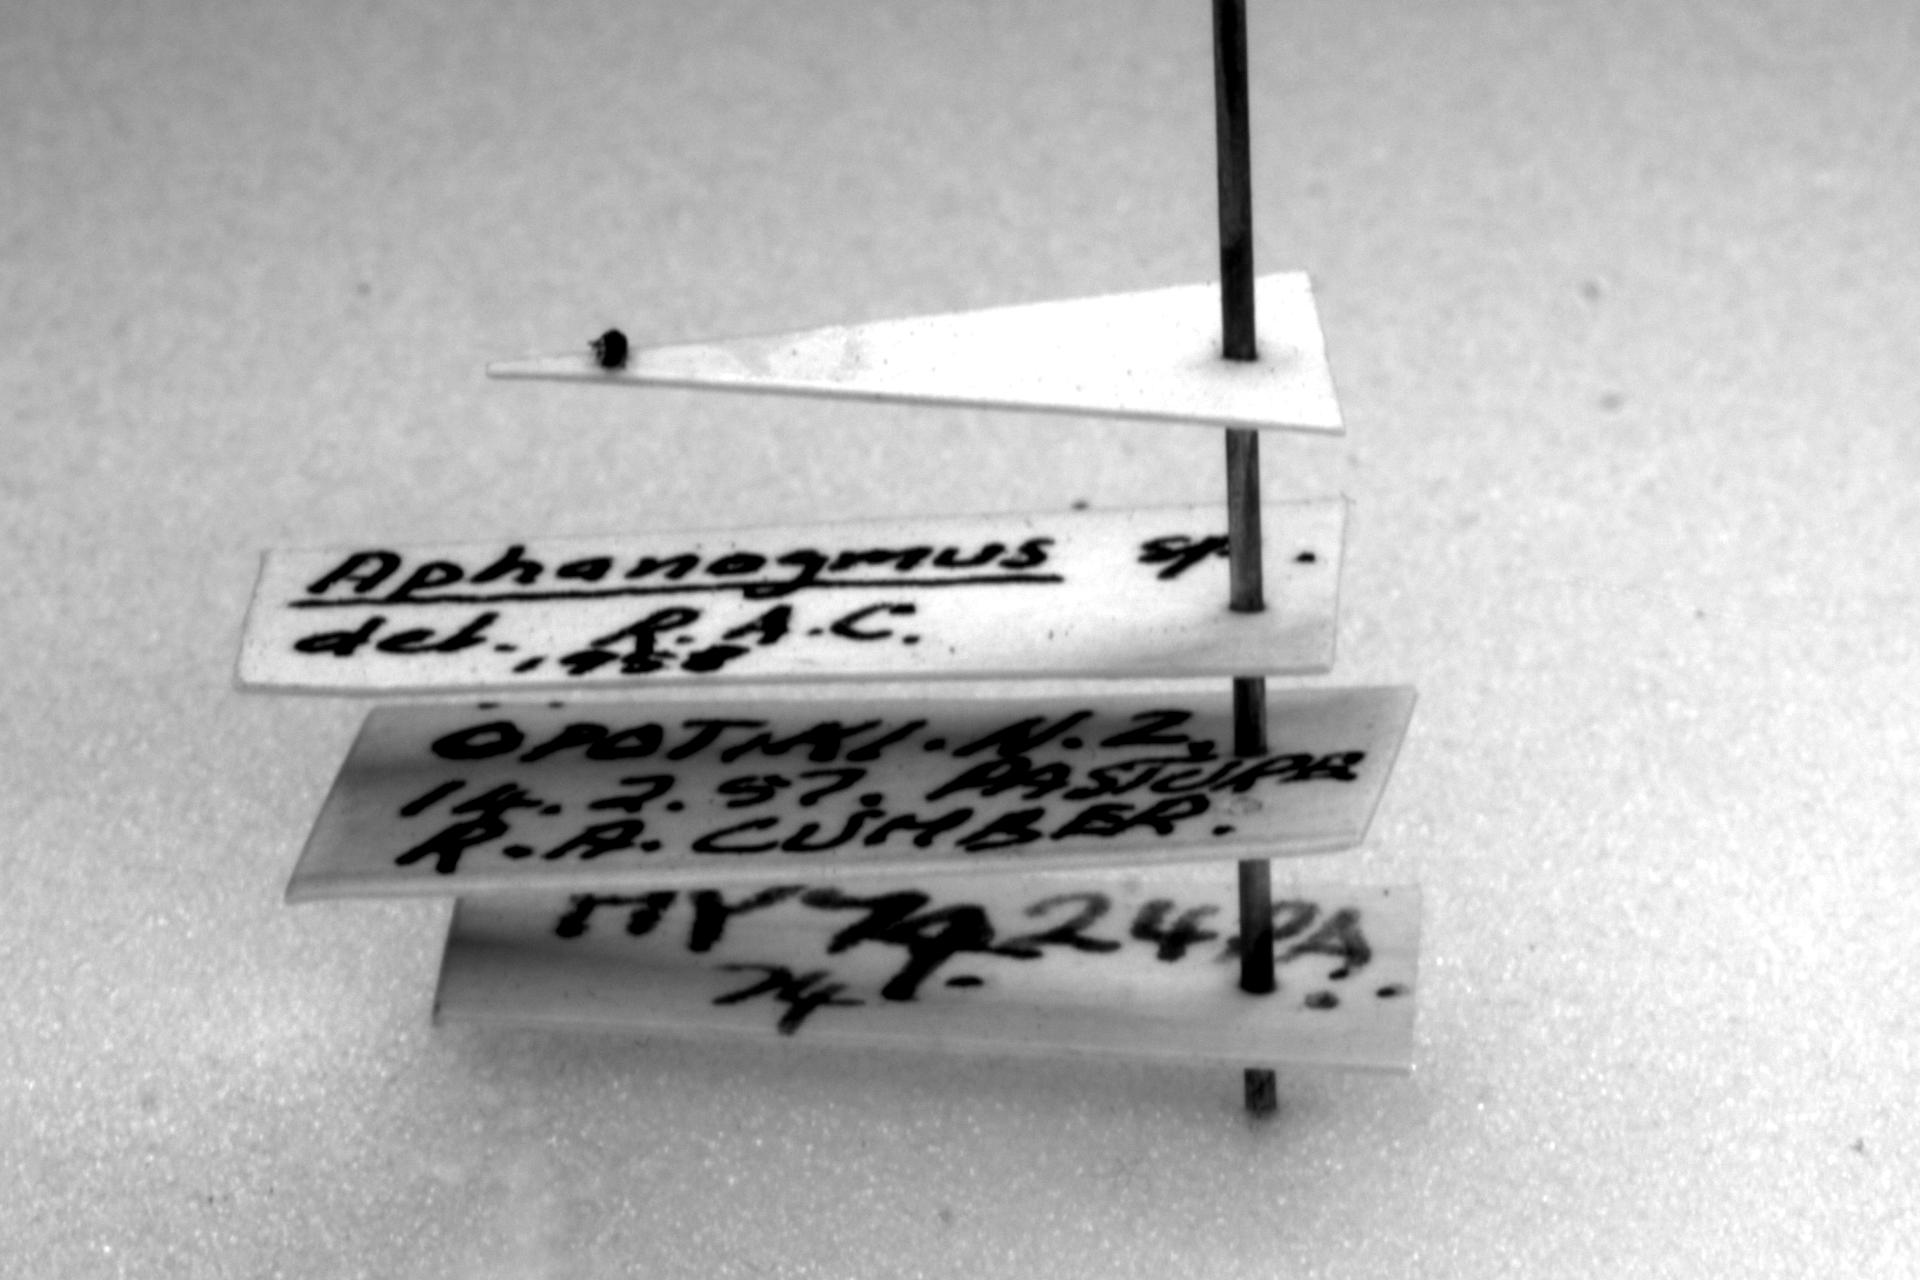 Aphanogmus sp.
det. R.A.C.
1958
OPOTIKI. N.Z.
14.2.57. PASTURE
R.A. CUMBER.
24